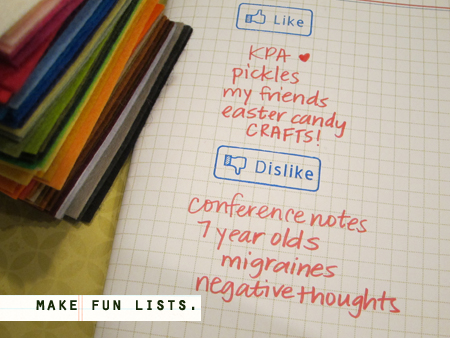 Like
KPA ♥
pickles
my friends
easter candy
CRAFTS!
Dislike
conference notes
7 year olds
migraines
negative thoughts
MAKE FUN LISTS.